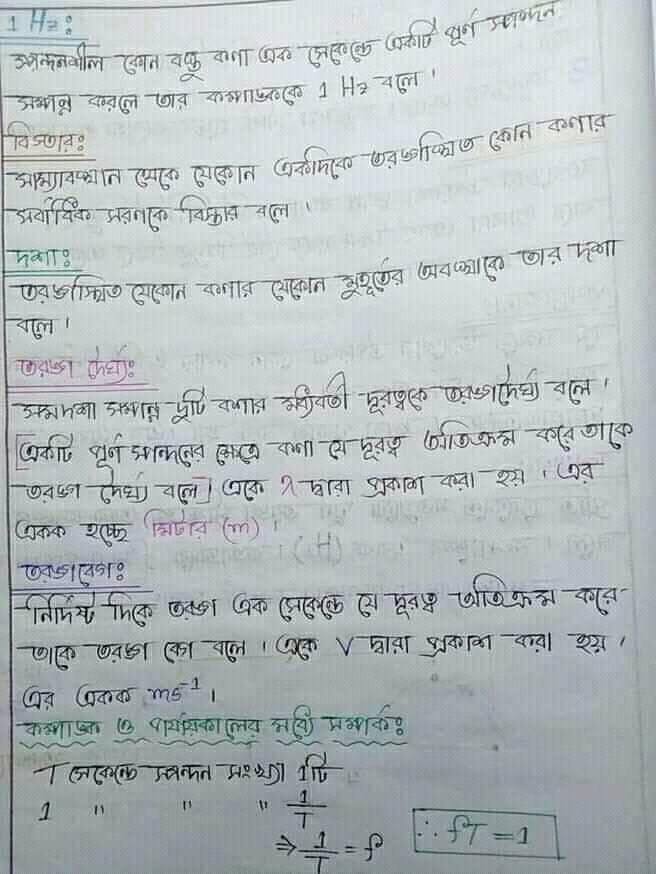 1 Hz:
স্পন্দনশীল কোন বস্তু কণা এক সেকেন্ডে একটি পূর্ণ স্পন্দন
সম্পন্ন করলে তার কম্পাঙ্ককে 1 Hz বলে।
বিস্তার:
সাম্যাবস্থান থেকে যেকোন একদিকে তরঙ্গস্থিত কোন কণার
সর্বাধিক সরণকে বিস্তার বলে।
দশা:
তরঙ্গস্থিত যেকোন কণার যেকোন মুহূর্তের অবস্থাকে তার দশা
বলে।
তরঙ্গ দৈর্ঘ্য:
সমদশা সম্পন্ন দুটি কণার মধ্যবর্তী দূরত্বকে তরঙ্গদৈর্ঘ্য বলে।
[একটি পূর্ণ স্পন্দনের ক্ষেত্রে কণা যে দূরত্ব অতিক্রম করে তাকে
তরঙ্গ দৈর্ঘ্য বলে] একে λ দ্বারা প্রকাশ করা হয়। এর
একক হচ্ছে মিটার (m)।
তরঙ্গবেগ:
নির্দিষ্ট দিকে তরঙ্গ এক সেকেন্ডে যে দূরত্ব অতিক্রম করে
তাকে তরঙ্গ বেগ বলে। একে V দ্বারা প্রকাশ করা হয়।
এর একক ms⁻¹।
কম্পাঙ্ক ও পর্যায়কালের মধ্যে সম্পর্ক:
T সেকেন্ডে স্পন্দন সংখ্যা 1টি
1 " " " 1/T
⇒ 1/T = f
∴ fT = 1